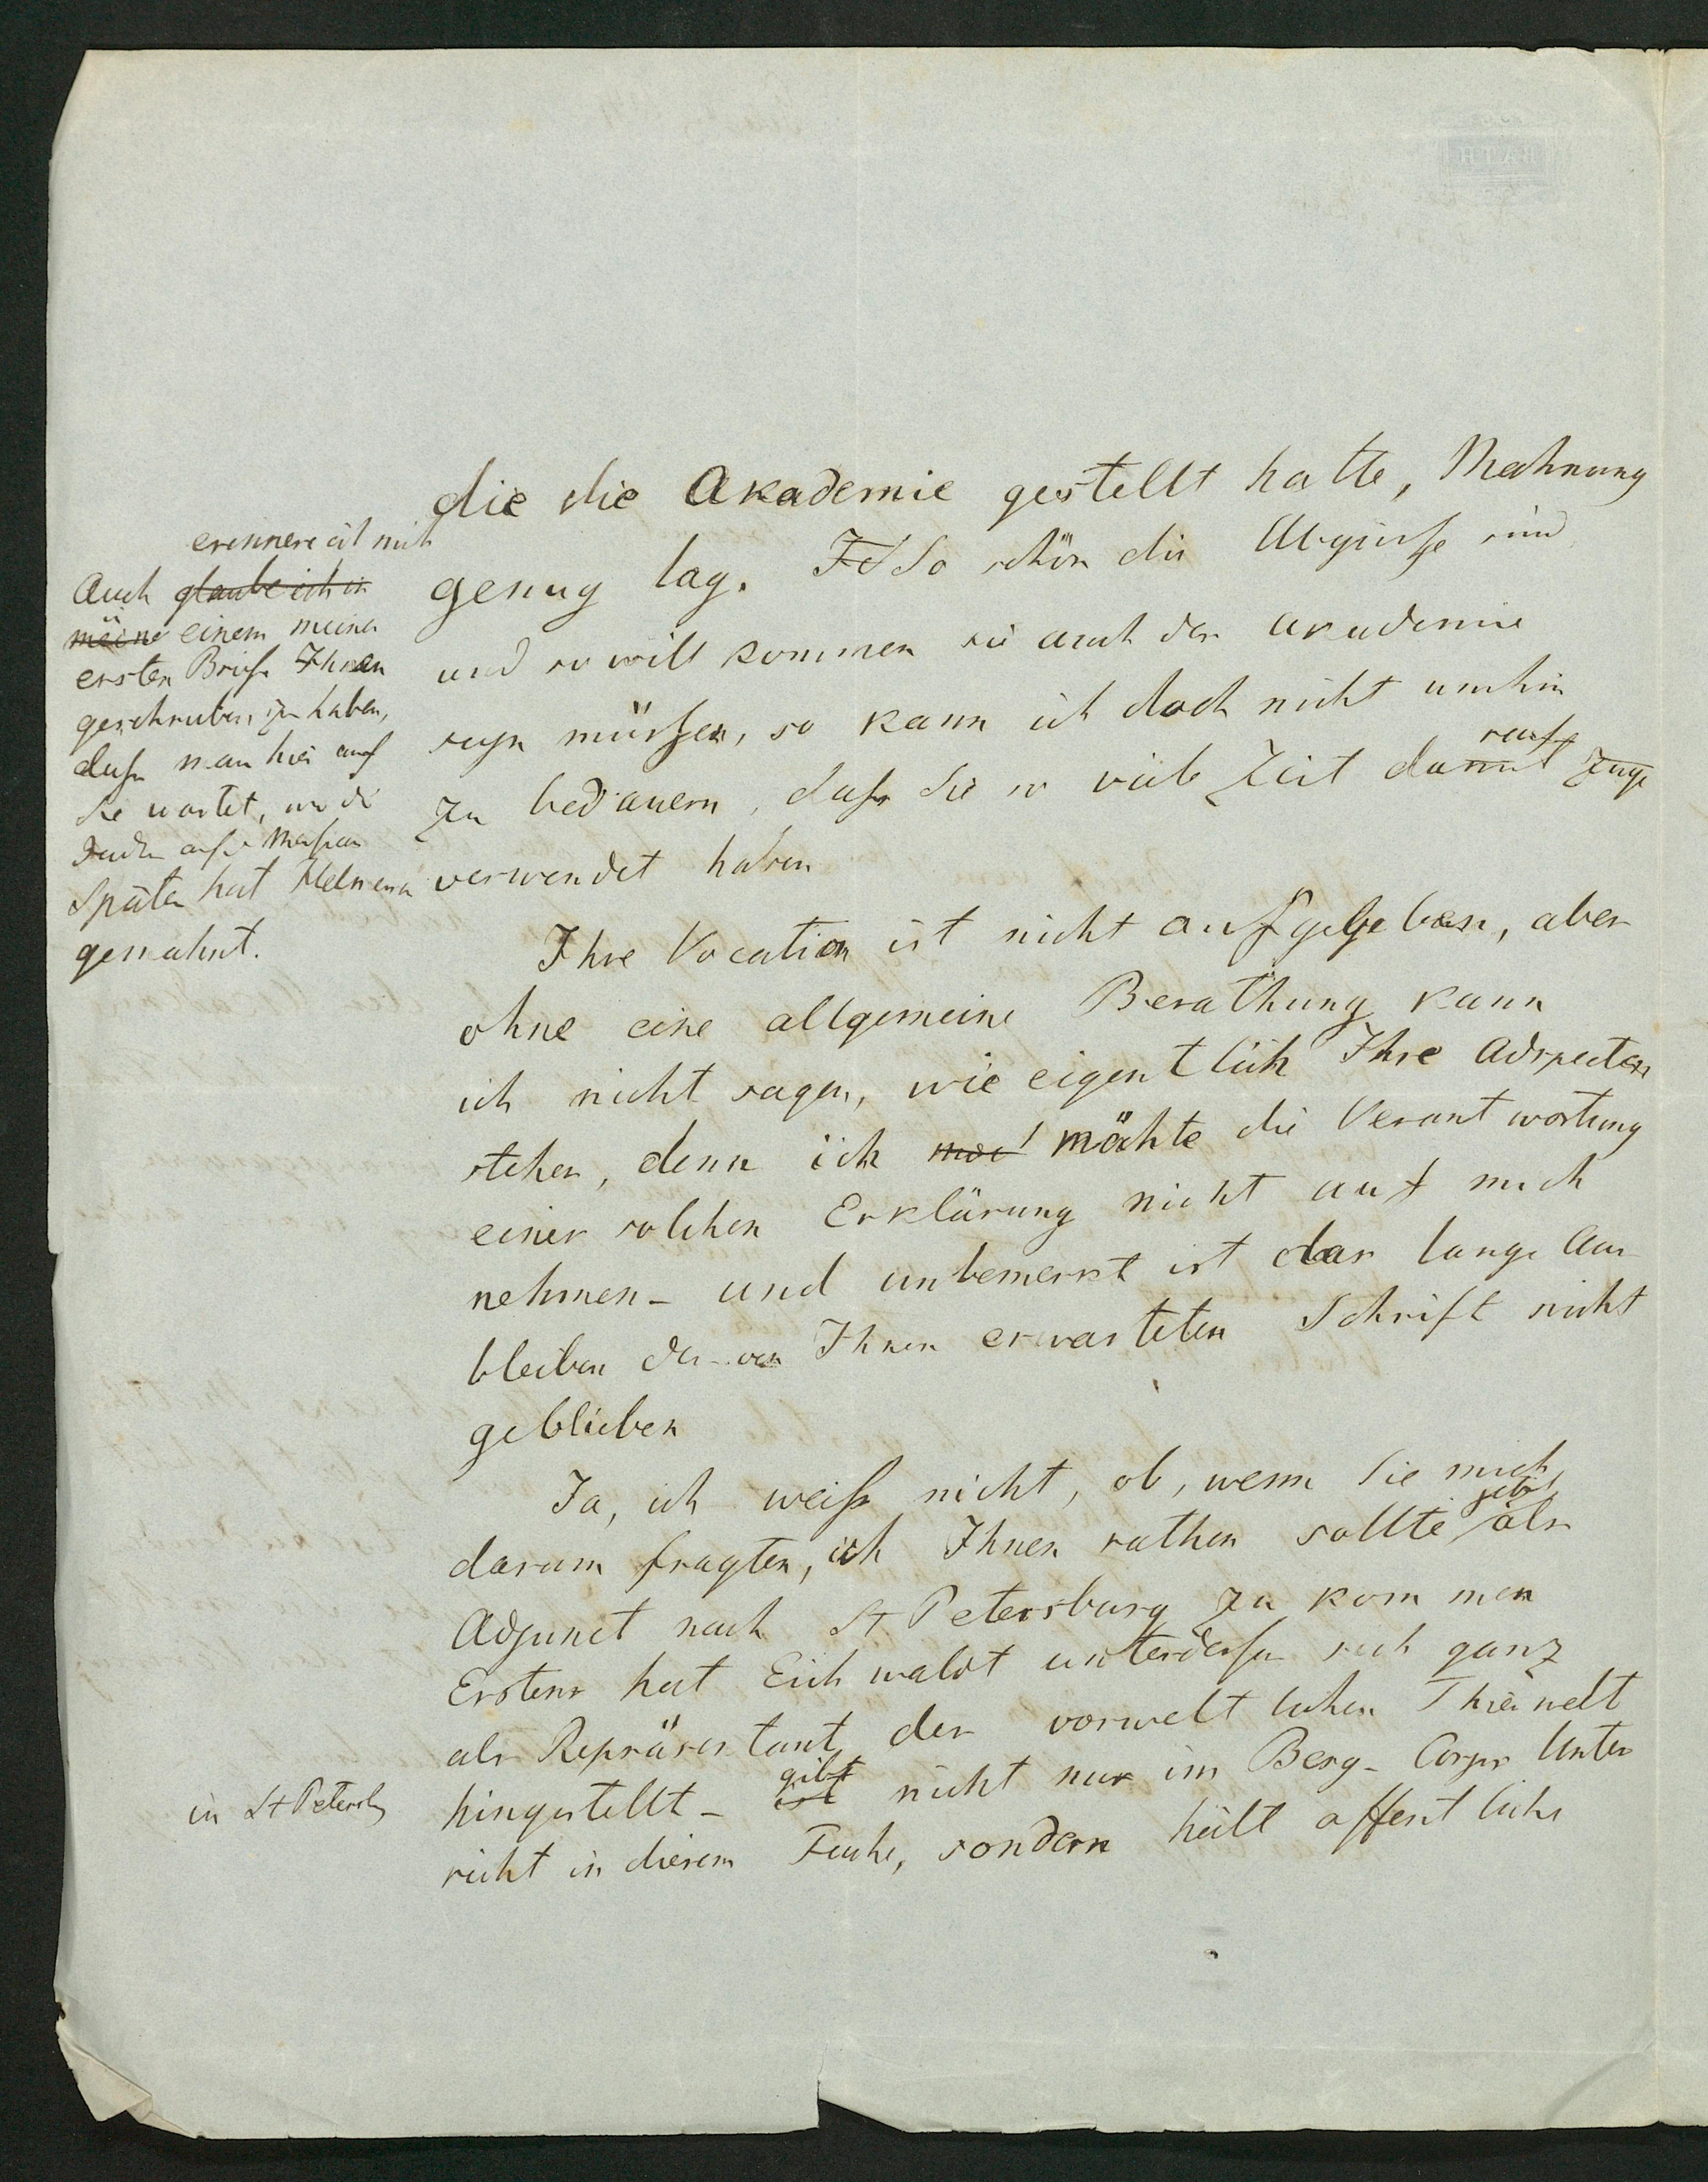 die die Akademie gestellt hatte, Mahnung
genug lag. So schön die Abgüsse sind
und so willkommen sie auch der Akademie
seyn müssen, so kann ich doch nicht umhin
zu bedauern, dass Sie so viele Zeit darauf
verwendet haben
Ihre Vocation ist nicht aufgegeben, aber
ohne eine allgemeine Berathung kann
ich nicht sagen, wie eigentlich Ihre Adspecten
stehen, denn ich möchte die Verantwortung
einer solchen Erklärung nicht auf mich
nehmen – und unbemerkt ist das lange Aus
bleiben der von Ihnen erwarteten Schrift nicht
geblieben
Ja, ich weiss nicht, ob, wenn Sie mich
darum fragten, ich Ihnen rathen sollte jetzt als
Adjunct nach St Petersburg zu kommen
Erstens hat Eichwaldt unterdessen sich ganz
als Repräsentant der vorweltlichen Thierwelt
hingestellt – gibt nicht nur im Berg-Corps Unter
richt in diesem Fache, sondern hält offentliche
Auch glaube ich in erinnere ich mich
meine einem meiner
ersten Briefe Ihnen
geschrieben zu haben,
dass man hier auf
Sie wartet, um die
Später hat Helmersen
gemahnt.
in St Petersb